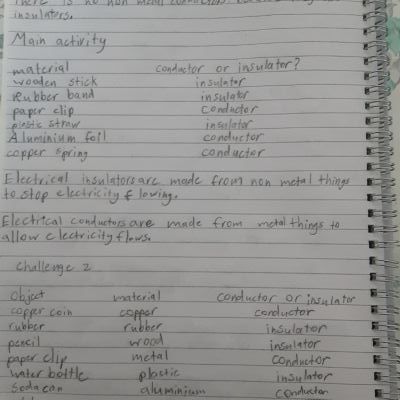 There is no non metal conductors because they are
insulators.
Main activity
material conductor or insulator?
wooden stick insulator
Rubber band insulator
paper clip conductor
plastic straw insulator
Aluminium foil conductor
copper spring conductor
Electrical insulators are made from non metal things
to stop electricity flowing.
Electrical conductors are made from metal things to
allow electricity flows.
Challenge 2
Object material conductor or insulator
copper coin copper conductor
rubber rubber insulator
pencil wood insulator
paper clip metal conductor
water bottle plastic insulator
soda can aluminium conductor